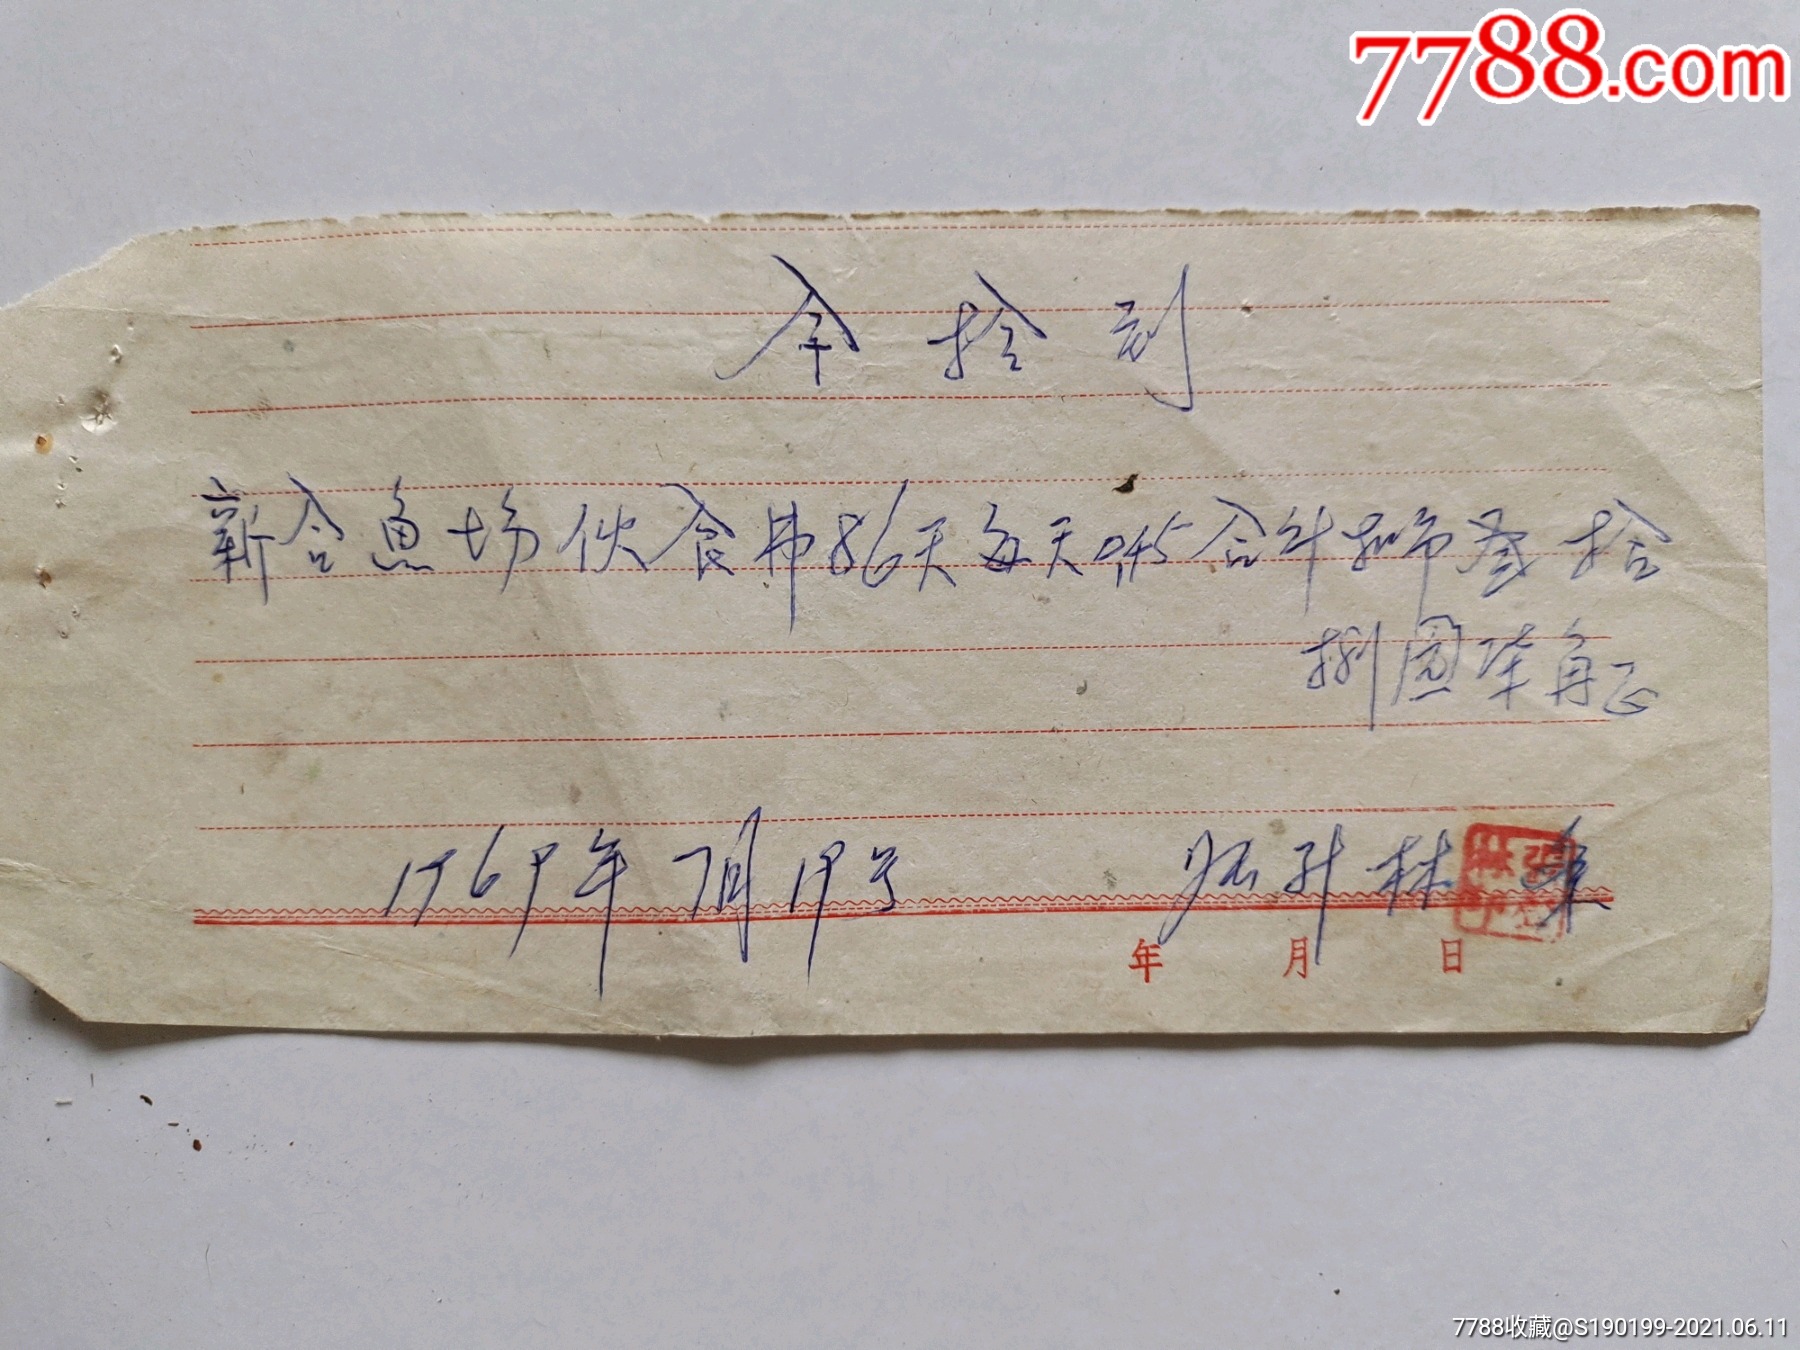 7788.com
今拾到
新合鱼场伙食费86天每天0.45合计币叁拾
捌圆柒角正
1969年7月19号 张升林
年 月 日
7788收藏@S190199-2021.06.11